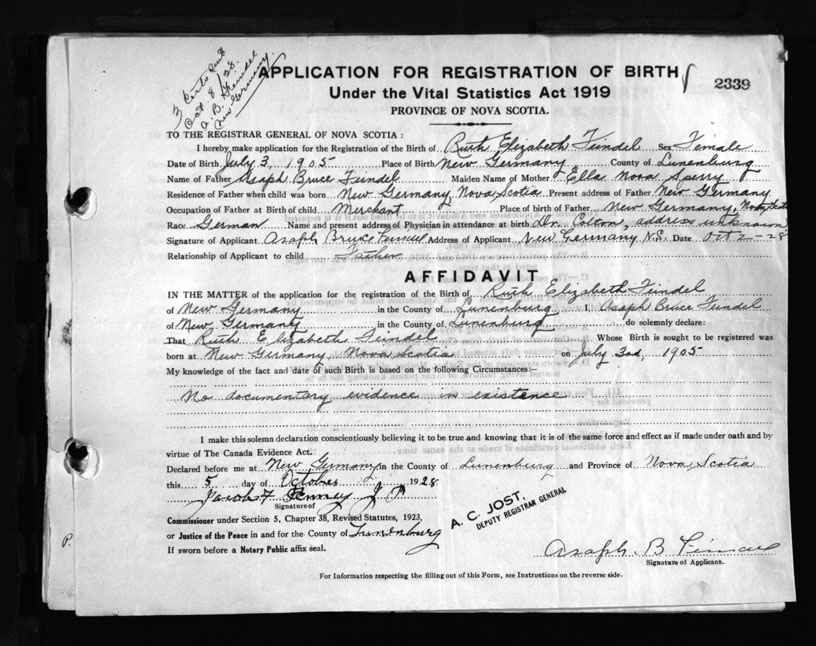 3 Certs Sent
Oct 8/28.
A. B. Feindel
New Germany.
APPLICATION FOR REGISTRATION OF BIRTH 2339
Under the Vital Statistics Act 1919
PROVINCE OF NOVA SCOTIA.
TO THE REGISTRAR GENERAL OF NOVA SCOTIA :
I hereby make application for the Registration of the Birth of Ruth Elizabeth Feindel Sex Female
Date of Birth July 3, 1905 Place of Birth New Germany County of Lunenburg
Name of Father Asaph Bruce Feindel Maiden Name of Mother Ella Nora Sperry
Residence of Father when child was born New Germany, Nova Scotia Present address of Father New Germany
Occupation of Father at Birth of child Merchant Place of birth of Father New Germany, Nova Scotia
Race German Name and present address of Physician in attendance at birth Dr. Cotton, address unknown
Signature of Applicant Asaph Bruce Feindel Address of Applicant New Germany N.S. Date Oct 2-28
Relationship of Applicant to child Father
AFFIDAVIT
IN THE MATTER of the application for the registration of the Birth of Ruth Elizabeth Feindel
of New Germany in the County of Lunenburg I, Asaph Bruce Feindel
of New Germany in the County of Lunenburg do solemnly declare:
That Ruth Elizabeth Feindel Whose Birth is sought to be registered was
born at New Germany, Nova Scotia on July 3rd, 1905
My knowledge of the fact and date of such Birth is based on the following Circumstances:—
No documentary evidence in existence
I make this solemn declaration conscientiously believing it to be true and knowing that it is of the same force and effect as if made under oath and by
virtue of The Canada Evidence Act.
Declared before me at New Germany in the County of Lunenburg and Province of Nova Scotia
this 5 day of October 1928
Jacob F J P
Signature of
A. C. JOST,
DEPUTY REGISTRAR GENERAL
Commissioner under Section 5, Chapter 38, Revised Statutes, 1923,
or Justice of the Peace in and for the County of Lunenburg
If sworn before a Notary Public affix seal.
Asaph. B Feindel
Signature of Applicant.
For Information respecting the filling out of this Form, see Instructions on the reverse side.
P.